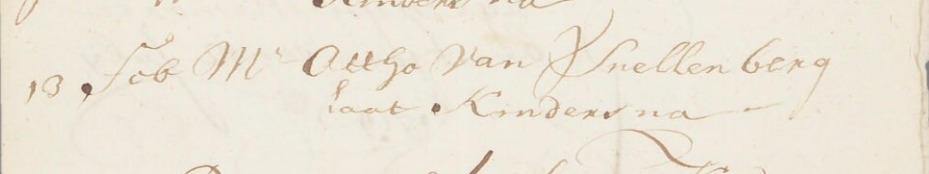 Kinders na
13 Feb Mr Ottho Van Snellenberg
laat Kinders na